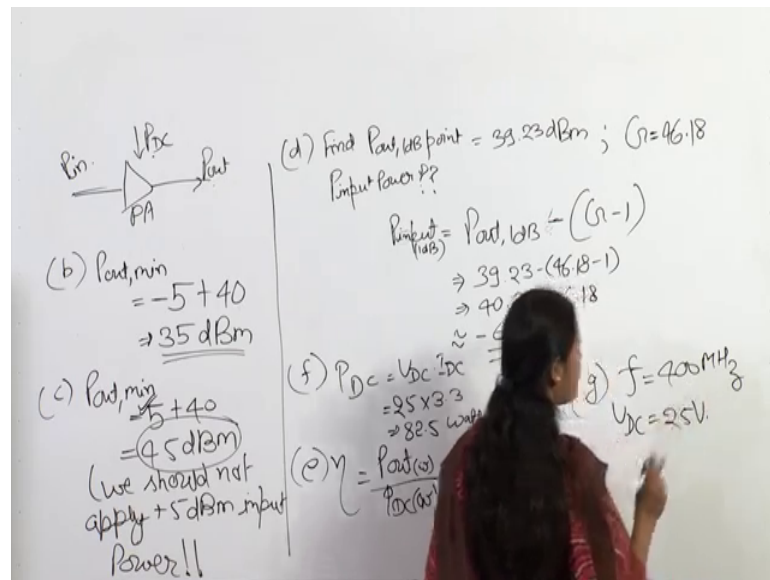 Pin
PDC
Pout
PA
(b) Pout,min
= -5+40
⇒ 35 dBm
(c) Pout,min
= 5+40
= 45dBm
(we should not
apply +5dBm input
Power!!
(d) Find Pout,1dB point = 39.23 dBm ; G=46.18
Pinput Power ??
Pinput(1dB) = Pout,1dB - (G-1)
⇒ 39.23-(46.18-1)
⇒ 40. 18
≈ -
(f) PDC = VDC.IDC
= 25 x 3.3
⇒ 82.5
(e) η = Pout(w)
PDC(w)
g) f = 400MHz
VDC = 25V.